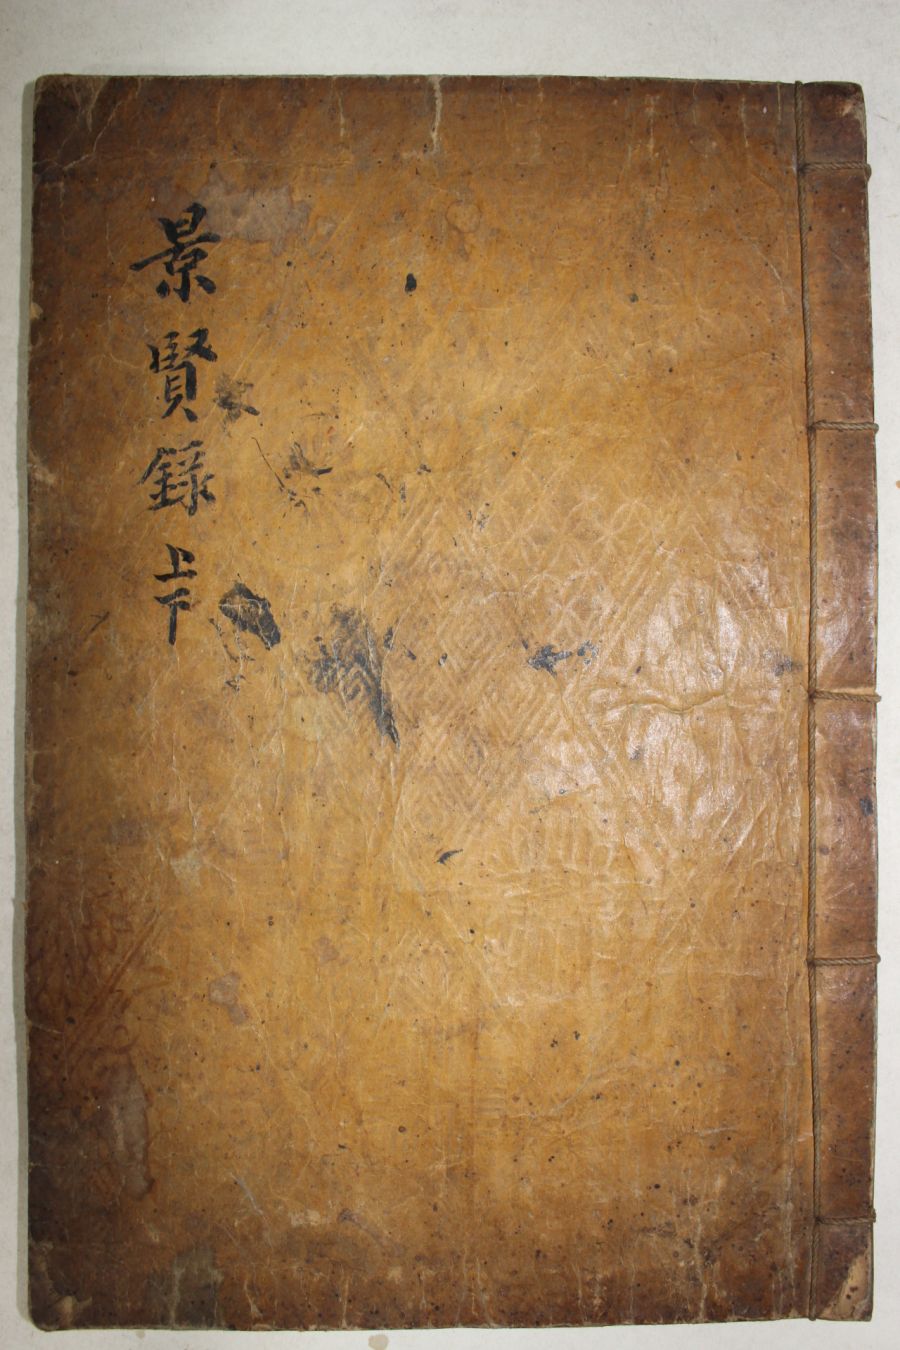 景賢錄 上下